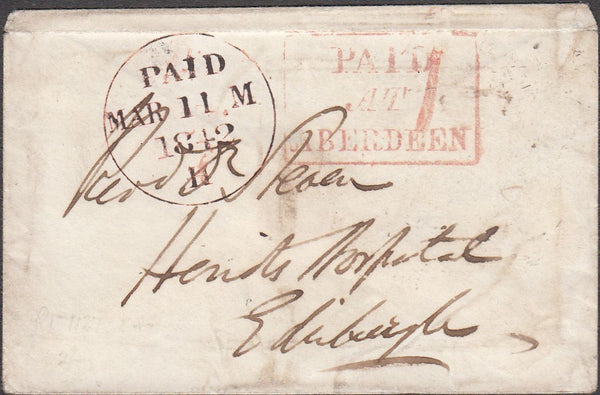 PAID
MAR 11 M
1842
PAID
AT
ABERDEEN
1
Heriots Hospital
Edinburgh